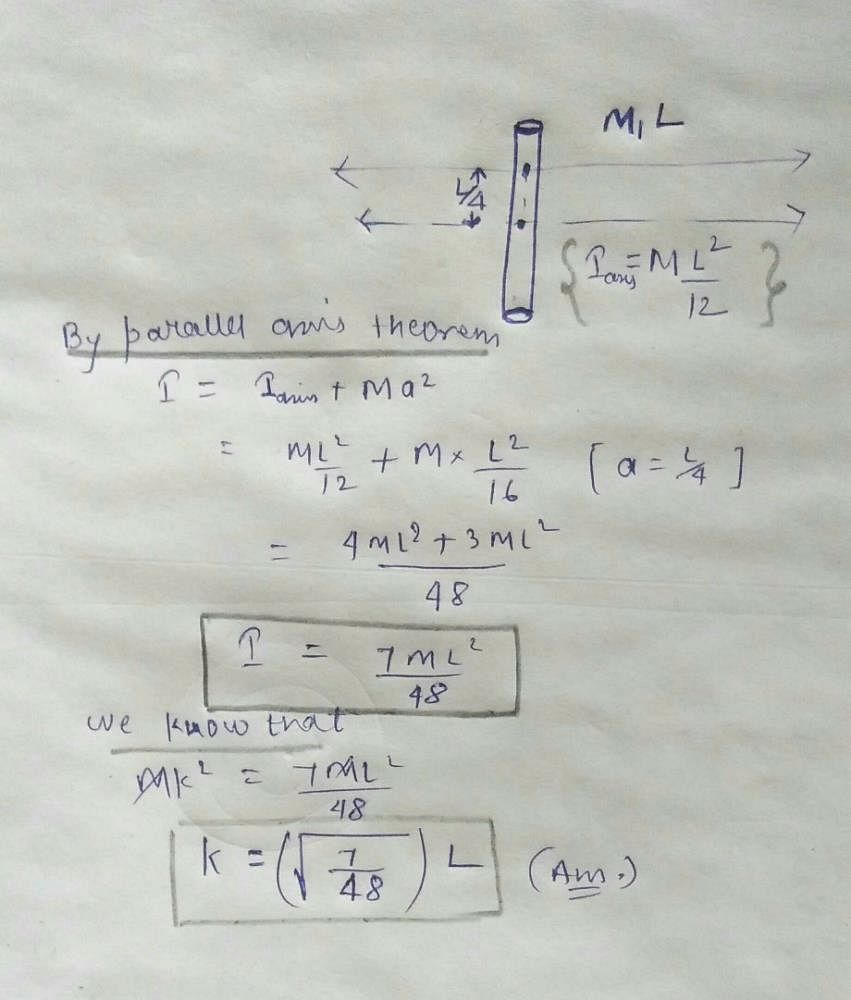 M, L
L/4
{ I_axis = ML²/12 }
By parallel axis theorem
I = I_axis + Ma²
= ML²/12 + M × L²/16 [a = L/4]
= (4ML² + 3ML²)/48
I = 7ML²/48
we know that
Mk² = 7ML²/48
K = (√(7/48)) L (Ans.)